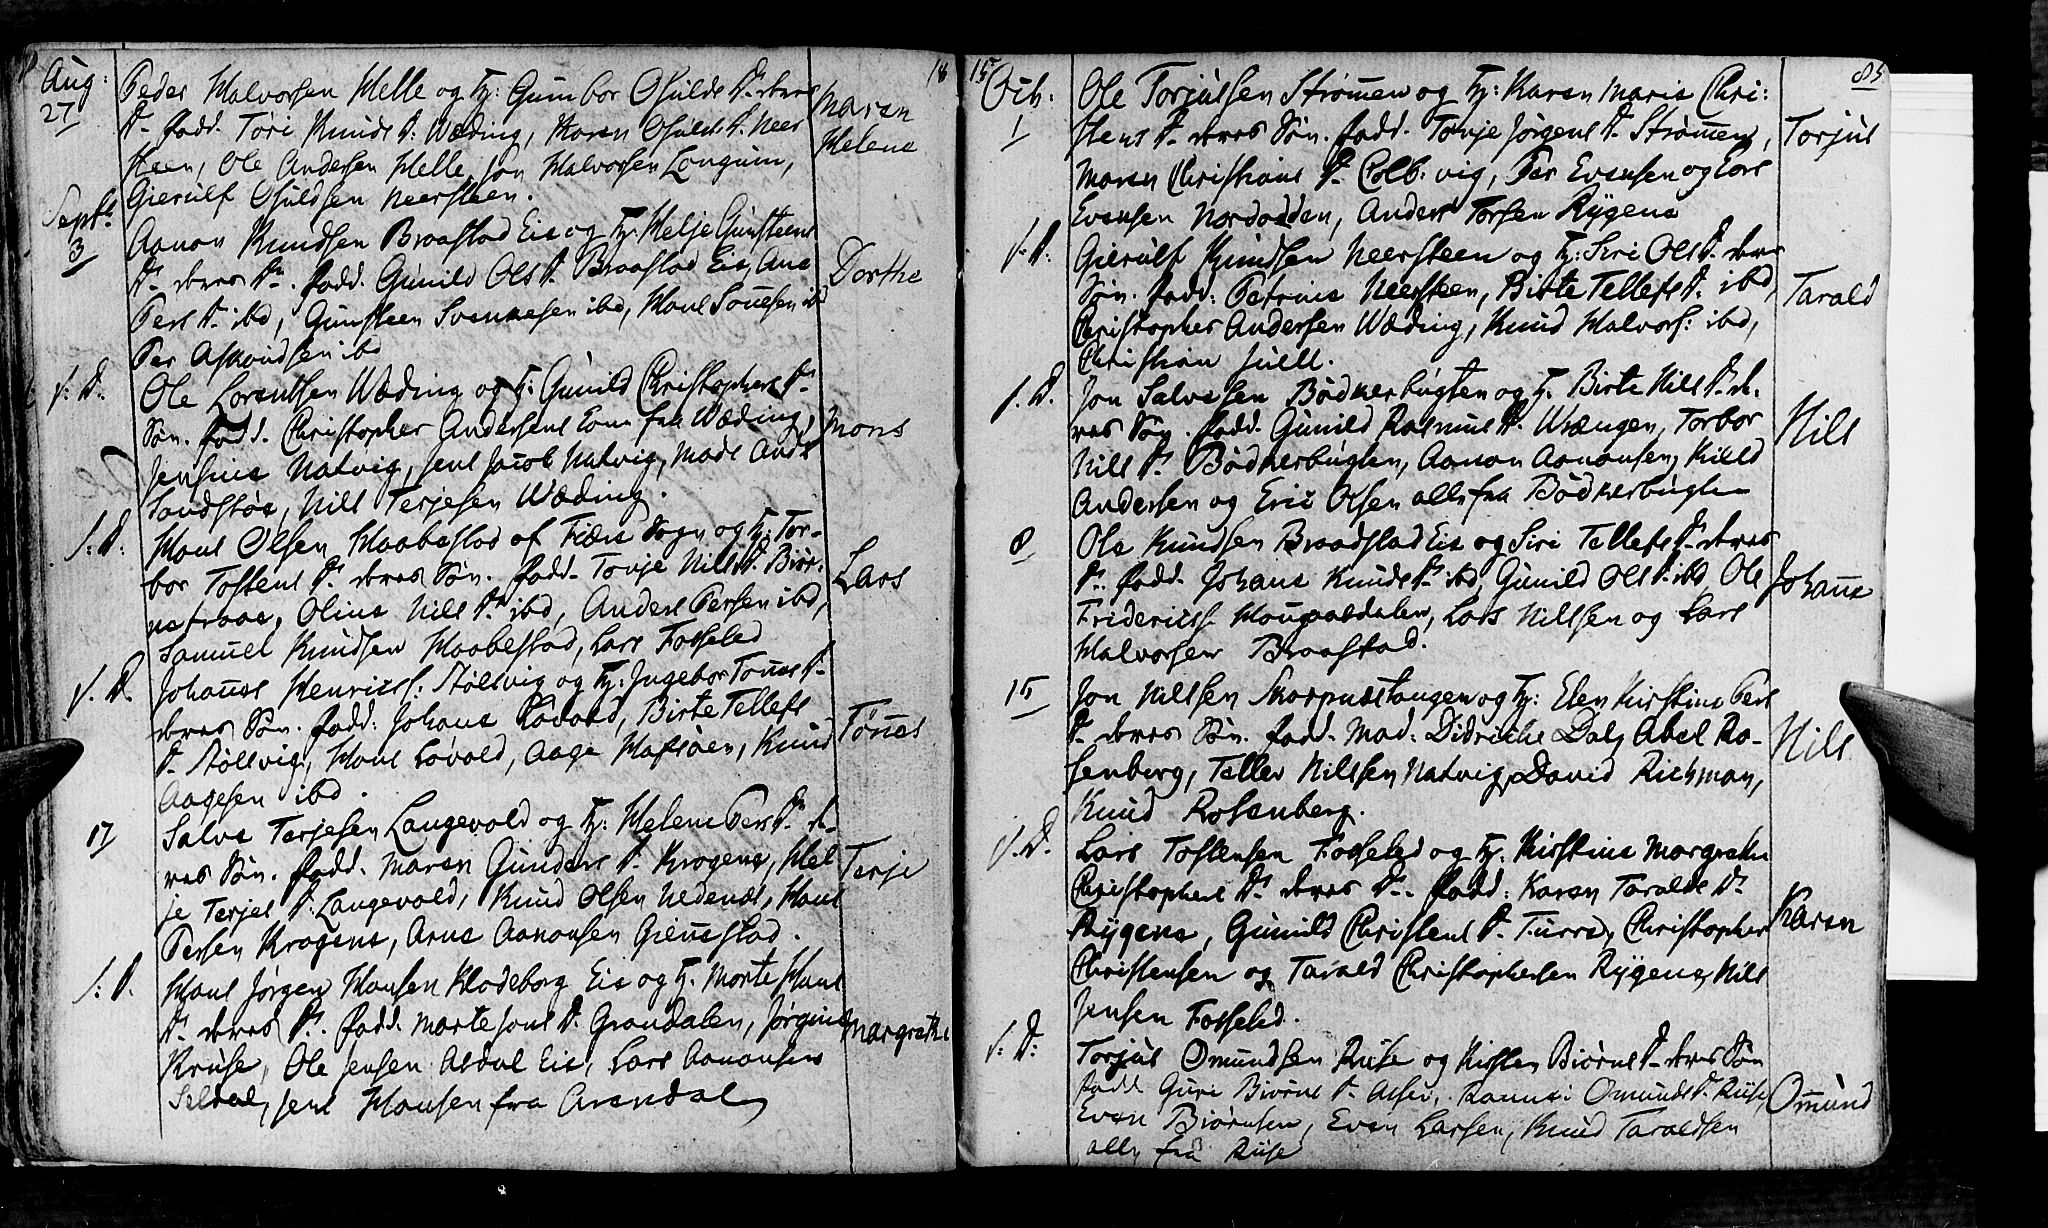 18
Aug:
27
Peder Halvorsen Helle og H: Gumbor Osulds D. deres
D. fadd. Tøri Knuds D: Wæding, Karen Osulds D. Neer
steen, Ole Andersen Helle, Jon Halvorsen Longum,
Gierulf Osuldsen Neersteen.
Maren
Helene
Septb.
3
Aanon Knudsen Braastad Eie og H: Helje Gunsteens
D. deres D. fadd. Gunild Ols D. Braastad Eie, Ane
Pers D. ibd, Gunsteen Svenkesen ibd, Hans ibd
Per Askoudsen ibd
Dorthe
s. D.
Ole Lorentsen Wæding og H: Gunild Christophers D.
Søn. fadd. Christopher Andersens Kone fra Wæding,
Jensine Natvig, Jens Jacob Natvig, Mads Ands
Sandstøe, Nils Terjesen Wæding.
Mons
s: D:
Hans Olsen Haabestad af Fiære Sogn og H: Tor-
bor Tostens D. deres Søn. fadd. Tonje Nils D. Biør-
netraae, Oline Nils D. ibd, Anders Persen ibd,
Samuel Knudsen Haabestad, Lars Fosseled
Lars
s. D.
Johannes Henrichs: Stølsvig og H: Ingebor Tønnes D.
deres Søn. fadd: Johane Lovold, Birte Tellefs
D. Stølsvig, Hans Lovold, Aage Hafsøen, Knud
Aagesen ibd.
Tønnes
17
Salve Terjesen Langevold og H: Helene Pers D. de-
res Søn. fadd. Maren Gunders D. Krogene, Hel-
je Terjes D. Langevold, Knud Olsen Nedenæs, Hans
Persen Krogene, Arne Aanonsen Gieusstad.
Terje
s: D.
Hans Jørgen Hansen Klodeborg Eie og H. Marte Hans
D. deres D. fadd. Marte Jons D. Grondalen, Jørgine
Kruse, Ole Jensen Asdal Eie, Lars Aanonsen
Seldal, Jens Hansen fra Arendal
Margrethe
15
85
Octb:
1
Ole Torjusen Strømen og H: Karen Marie Chri:
stens D. deres Søn. fadd. Tonje Jørgens D. Strømen,
Maren Christians D. Colb: vig, Per Evensen og Lars
Evensen Nordodden, Anders Torsen Rygene
Torjus
s: D:
Gierulf Knudsen Neersteen og H: Siri Ols D. deres
Søn. fadd: Petrine Neersteen, Birte Tellefs D. ibd,
Christopher Andersen Wæding, Knud Halvors: ibd,
Christian Juell.
Tarald
s. D.
Jon Salvesen Bødkerbugten og H. Birte Nils D. de-
res Søn. fadd. Gunild Rasmus D. Wrængen, Torbor
Nils D. Bødkerbugten, Aanon Aanonsen, Nils
Andersen og Eric Olsen alle fra Bødkerbugten
Nils
8
Ole Knudsen Braadstad Eie og Siri Tellefs D. deres
D. fadd. Johane Knuds D. ibd, Gunild Ols D. ibd, Ole
Fridericss Hougaasdalen, Lars Nilssen og Lars
Halvorsen Braastad.
Johane
15
Jon Nilssen Skarpnæstangen og H: Elen Kirstine Pers
D. deres Søn. fadd. Mad: Didriche Dal, Abel Ro-
senberg, Tellev Nilssen Natvig, David Richman,
Knud Rosenberg.
Nils
s. D.
Lars Tostensen Fosseled og H. Kirstine Margrethe
Christophers D. deres D. fadd: Karen Taralds D.
Rygene, Gunild Christens D. Furre, Christopher
Christensen og Tarald Christophersen Rygene, Nils
Jensen Fosseled.
Karen
s: D:
Torjus Omundsen Ruse og Kirsten Biørns D. deres Søn
fadd. Guri Biørns D. Omunds D. Ruse,
Even Biørnsen, Even Larsen, Knud Taraldsen
alle fra Ruse
Omund